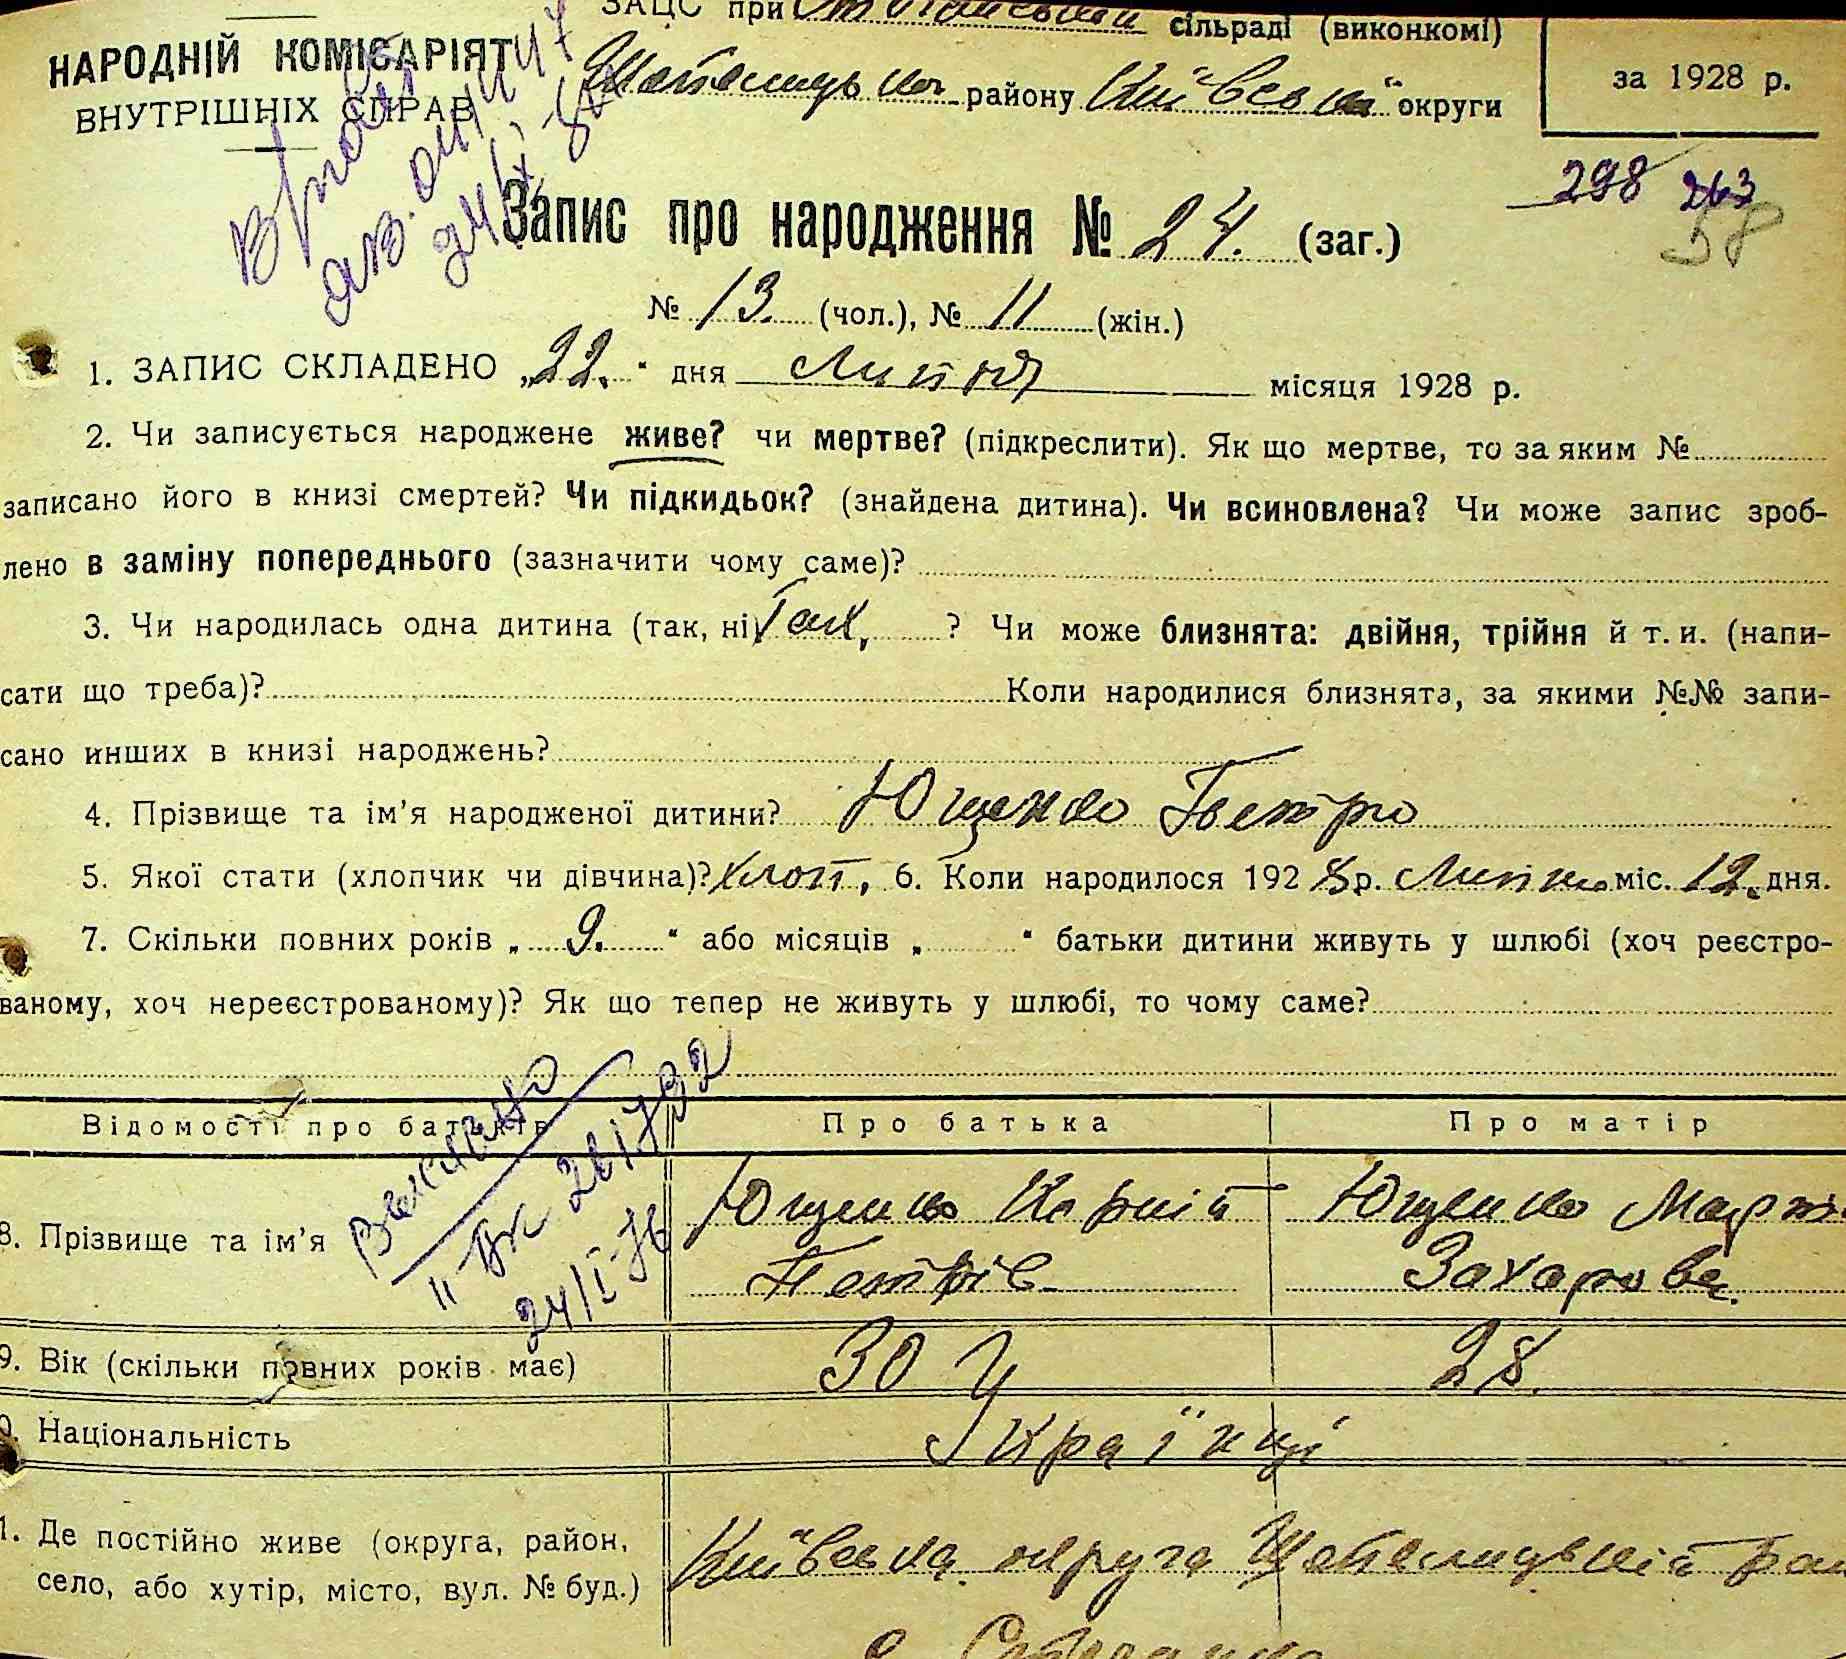 ЗАЦС при Стоянській сільраді (виконкомі)
НАРОДНІЙ КОМІСАРІЯТ
ВНУТРІШНІХ СПРАВ
району Київської округи
за 1928 р.
298 263
58
Запис про народження № 24. (заг.)
№ 13. (чол.), № 11 (жін.)
1. ЗАПИС СКЛАДЕНО „22.“ дня Липня місяця 1928 р.
2. Чи записується народжене живе? чи мертве? (підкреслити). Як що мертве, то за яким №
записано його в книзі смертей? Чи підкидьок? (знайдена дитина). Чи всиновлена? Чи може запис зроб-
лено в заміну попереднього (зазначити чому саме)?
3. Чи народилась одна дитина (так, ні) Так, ? Чи може близнята: двійня, трійня й т. и. (напи-
сати що треба)? Коли народилися близнята, за якими №№ запи-
сано инших в книзі народжень?
4. Прізвище та ім’я народженої дитини? Ющенко Петро
5. Якої стати (хлопчик чи дівчина)? хлоп, 6. Коли народилося 1928 р. Липня міс. 12. дня.
7. Скільки повних років „ 9. “ або місяців „ “ батьки дитини живуть у шлюбі (хоч реєстро-
ваному, хоч нереєстрованому)? Як що тепер не живуть у шлюбі, то чому саме?
Відомості про батьків Про батька Про матір
8. Прізвище та ім’я Ющенко Корній Ющенко
Петрів Захарова.
24/I-76
9. Вік (скільки повних років має) 30 28.
Національність Українці
Де постійно живе (округа, район, Київська округа
село, або хутір, місто, вул. № буд.)